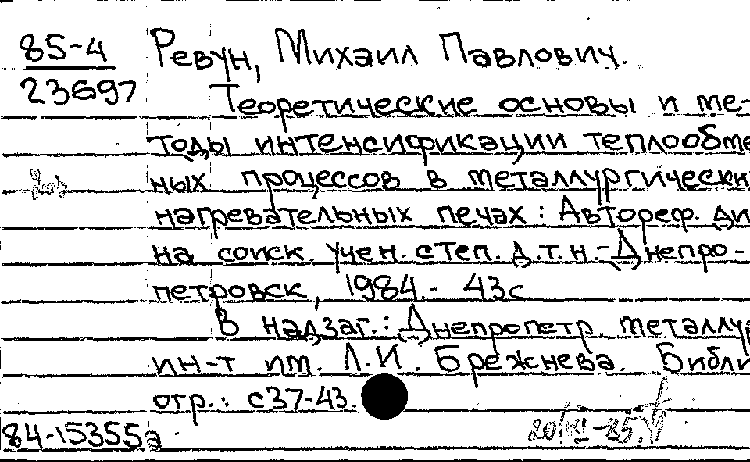 85-4
23697
Ревун, Михаил Павлович.
Теоретические основы и ме-
тоды интенсификации теплообме
ных процессов в металлургически
нагревательных печах: Автореф. ди
на соиск. учен. степ. д.т.н.-Днепро-
петровск, 1984.- 43с
В надзаг.: Днепропетр. металлур
ин-т им. Л.И. Брежнева. Библи
огр.: с37-43.
84-15355а